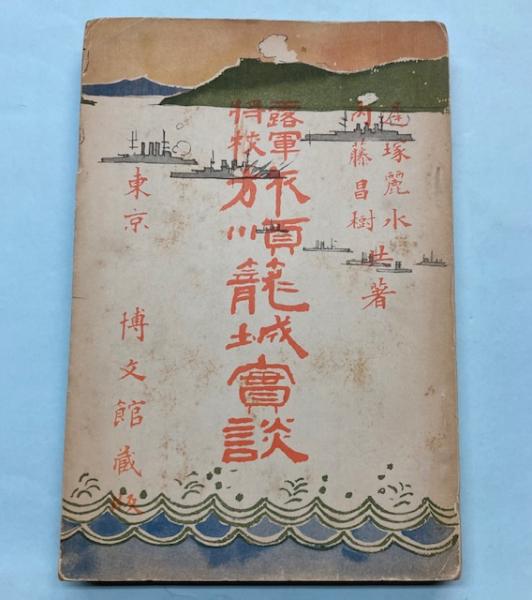 遅塚麗水
内藤昌樹
共著
露軍
将校
旅順籠城實談
東京 博文館蔵版